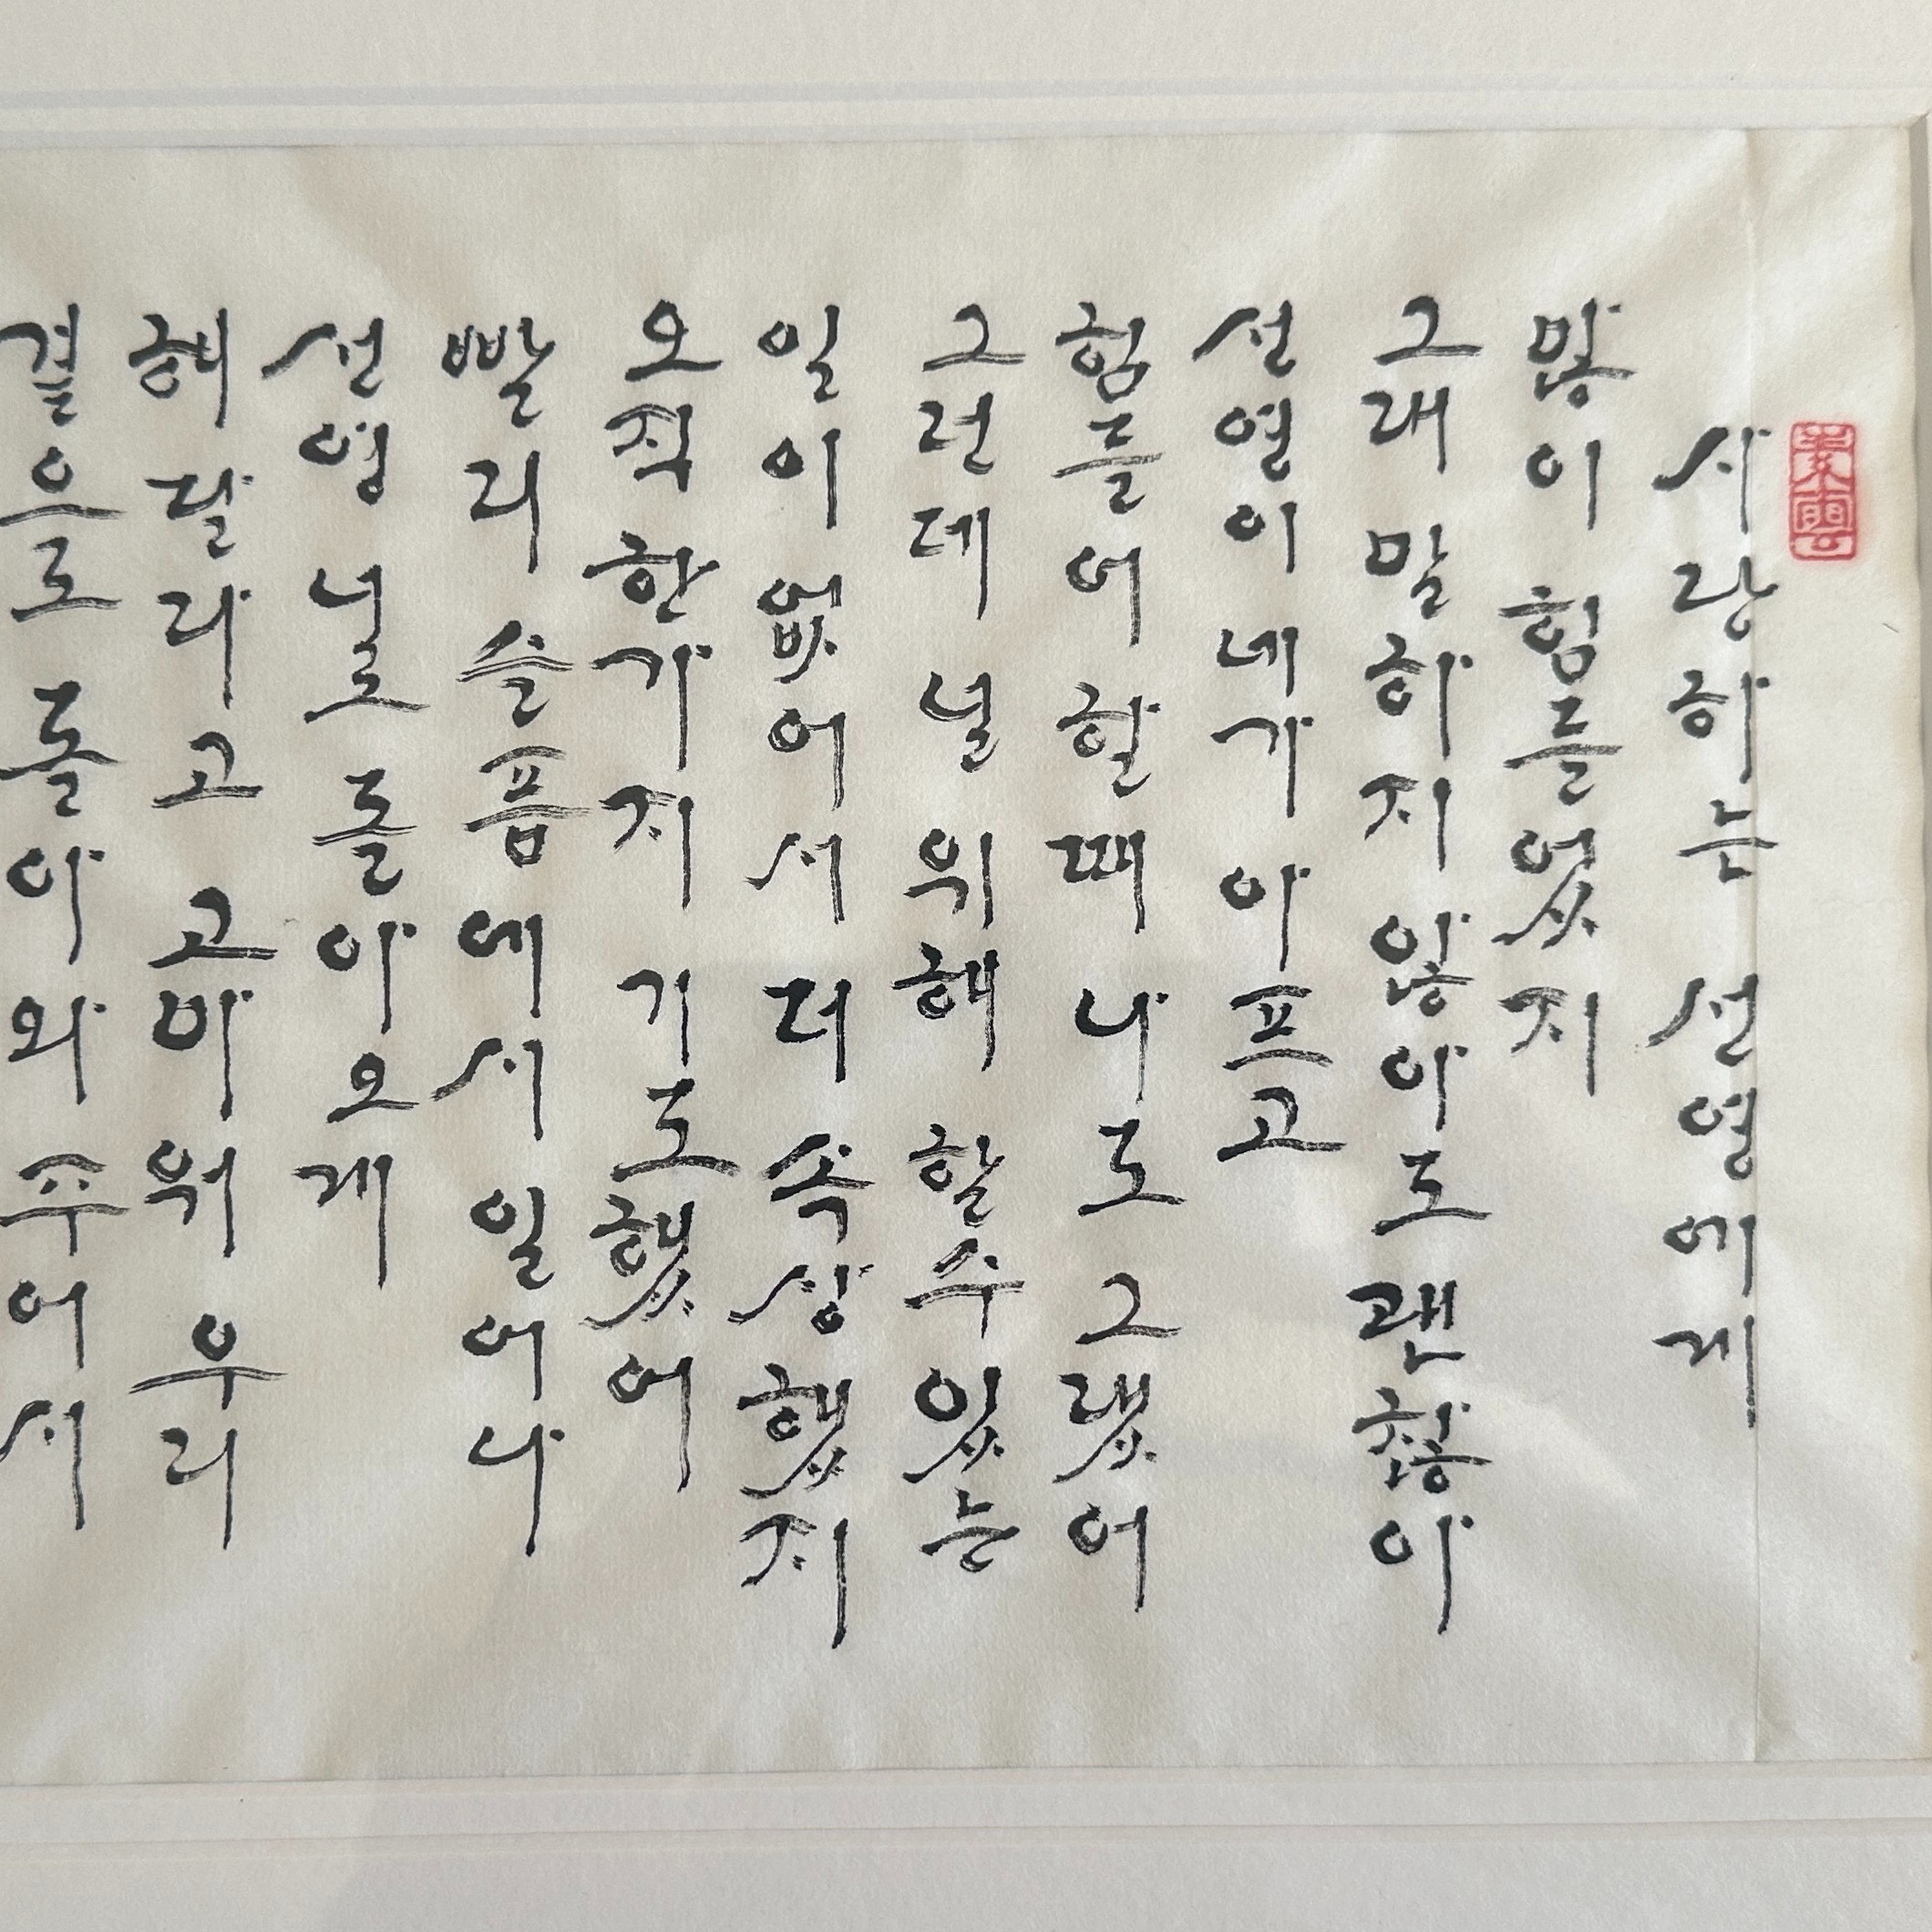 사랑하는 선영에게
많이 힘들었지
그래 말하지 않아도 괜찮아
선영이 네가 아프고
힘들어 할 때 나도 그랬어
그런데 널 위해 할 수 있는
일이 없어서 더 속상했지
오직 한가지 기도했어
빨리 슬픔에서 일어나
선영 너로 돌아오게
해달라고 고마워 우리
곁으로 돌아와 주어서